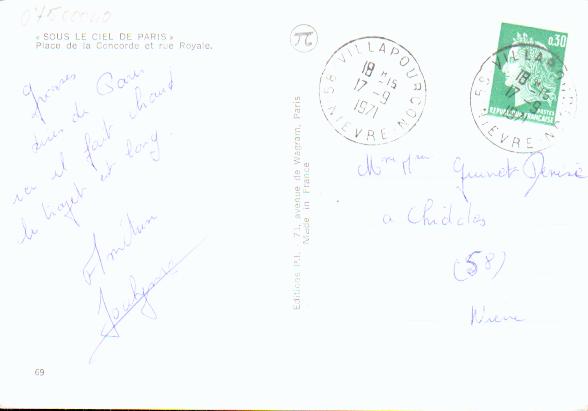 07500040
« SOUS LE CIEL DE PARIS »
Place de la Concorde et rue Royale.
Grosses
bises de Paris
où il fait chaud
le trajet est long.
Amitiés
69
π
Editions P.I. - 71, avenue de Wagram, Paris
Made in France
58 VILLAPOURÇON
18 H 15
17 - 9
1971
NIEVRE
0,30
POSTES
REPUBLIQUE FRANÇAISE
58 VILLAPOURÇON
18 H 15
17 - 9
1971
NIEVRE
Mme Mr Denise
a Chiddes
(58)
Nièvre